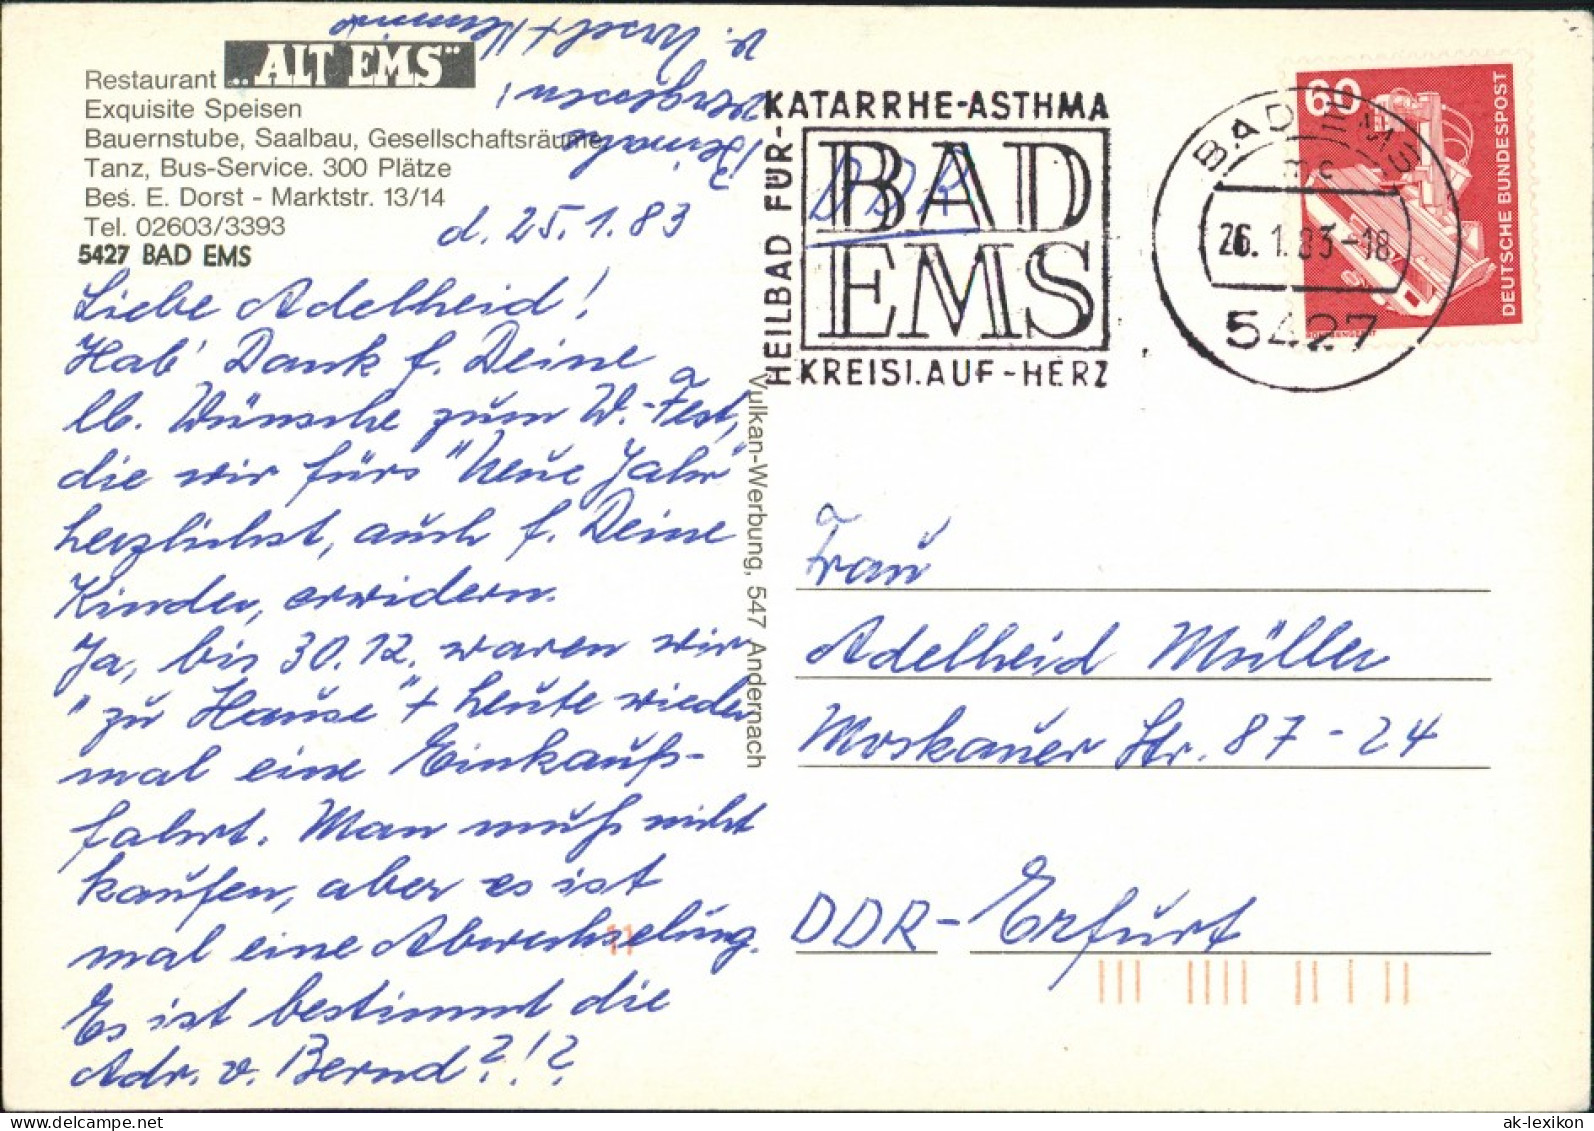 Restaurant „ALT EMS“
Exquisite Speisen
Bauernstube, Saalbau, Gesellschaftsräume
Tanz, Bus-Service. 300 Plätze
Bes. E. Dorst - Marktstr. 13/14
Tel. 02603/3393
5427 BAD EMS
d. 25.1.83
Liebe Adelheid!
Hab' Dank f. Deine
lb. Wünsche zum W.-Fest,
die wir fürs "Neue Jahr"
herzlichst, auch f. Deine
Kinder, erwidern.
Ja, bis 30.12. waren wir
"zu Hause" + heute wieder
mal eine Einkaufs-
fahrt. Man muß nicht
kaufen, aber es ist
mal eine Abwechselung.
Es ist bestimmt die
Adr. v. Bernd?!?
Beinahe
vergessen!
v. Ursel +
Vulkan-Werbung, 547 Andernach
DDR
HEILBAD FÜR-
KATARRHE-ASTHMA
BAD
EMS
KREISLAUF-HERZ
BAD EMS
mc
26.1.83-18
5427
60
DEUTSCHE BUNDESPOST
Frau
Adelheid Müller
Moskauer Str. 87-24
DDR- Erfurt
ak-lexikon